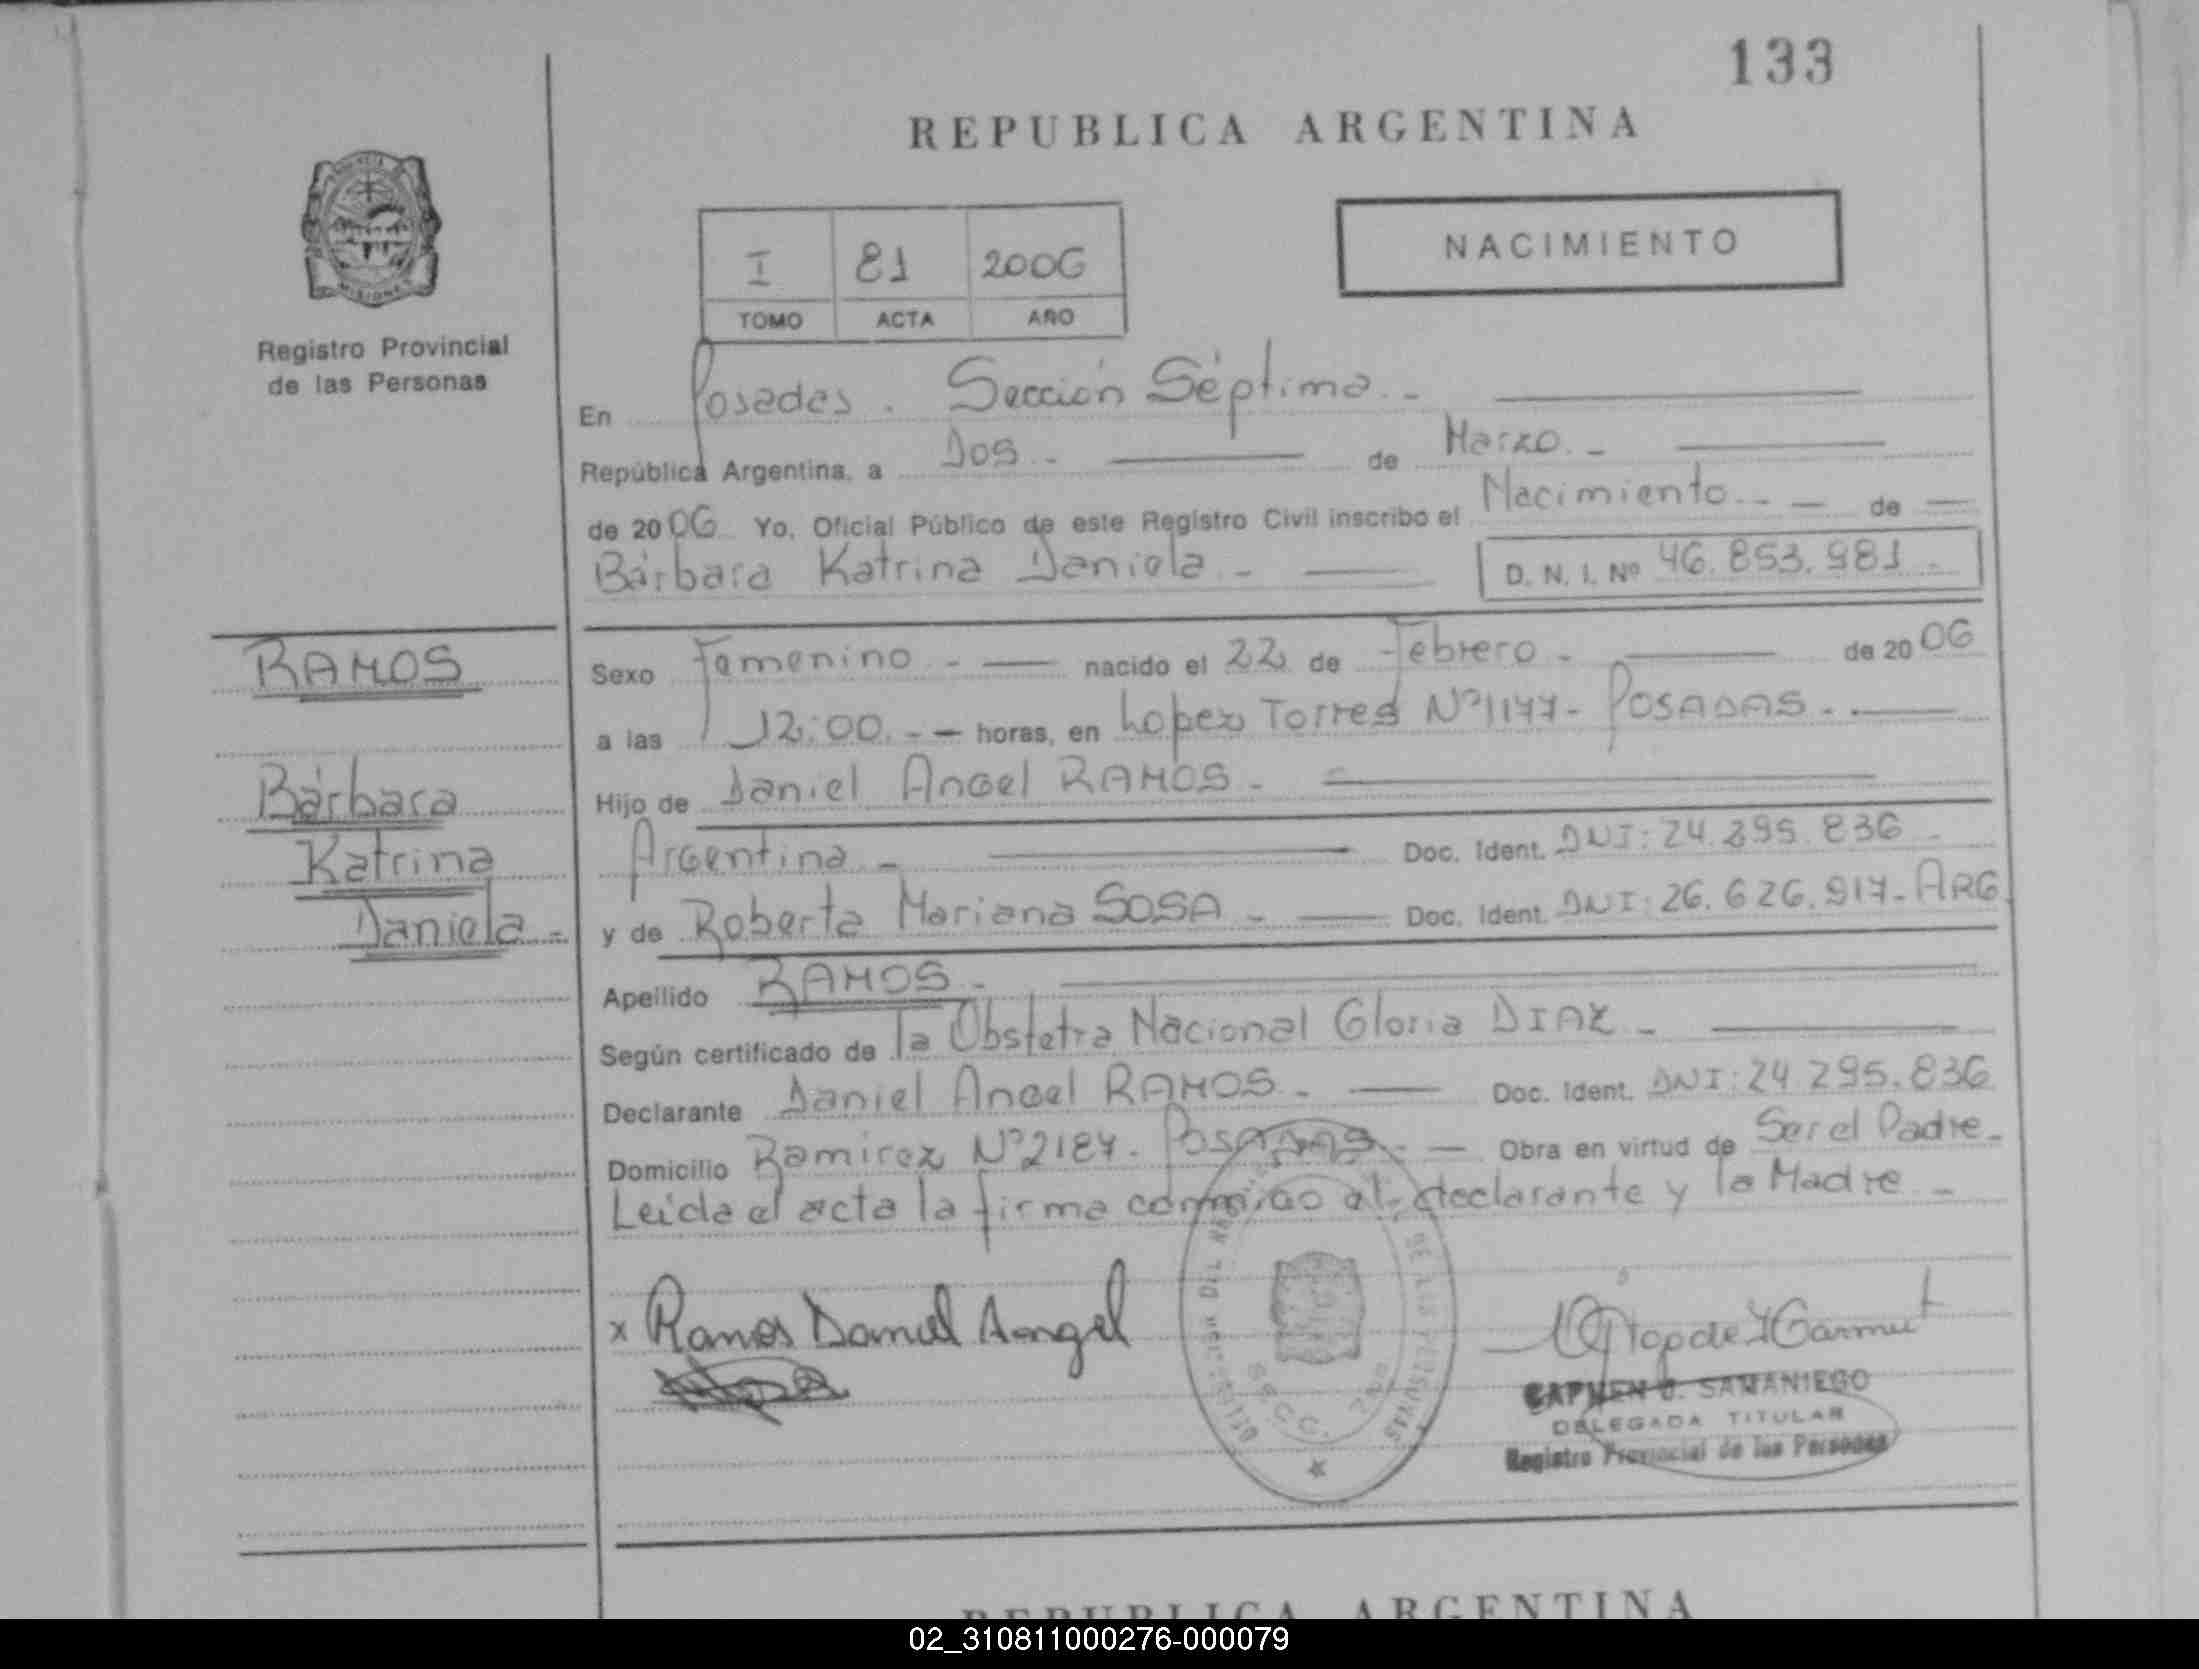 133
REPUBLICA ARGENTINA
NACIMIENTO
I 81 2006
TOMO ACTA AÑO
MISIONES
Registro Provincial
de las Personas
En Posadas. Sección Séptima.-
República Argentina, a Dos.- de Marzo.-
de 2006 Yo, Oficial Público de este Registro Civil inscribo el Nacimiento.-- de
Bárbara Katrina Daniela.- D. N. I. Nº 46.853.981.-
RAMOS
Bárbara
Katrina
Daniela.-
Sexo Femenino.- nacido el 22 de Febrero.- de 2006
a las 12:00.-- horas, en Lopez Torres Nº1177- POSADAS.-
Hijo de Daniel Angel RAMOS.-
Argentina.- Doc. Ident. DNI: 24.295.836.-
y de Roberta Mariana SOSA.- Doc. Ident. DNI: 26.626.917-ARG
Apellido RAMOS.-
Según certificado de la Obstetra Nacional Gloria DIAZ.-
Declarante Daniel Angel RAMOS.- Doc. Ident. DNI: 24.295.836
Domicilio Ramirez Nº2187- POSADAS.- Obra en virtud de Ser el Padre.-
Leida el acta la firma conmigo el declarante y la Madre.-
x Ramos Daniel Angel
DE LAS PERSONAS
CARMEN SAMANIEGO
DELEGADA TITULAR
Registro Provincial de las Personas
REPUBLICA ARGENTINA
02_310811000276-000079